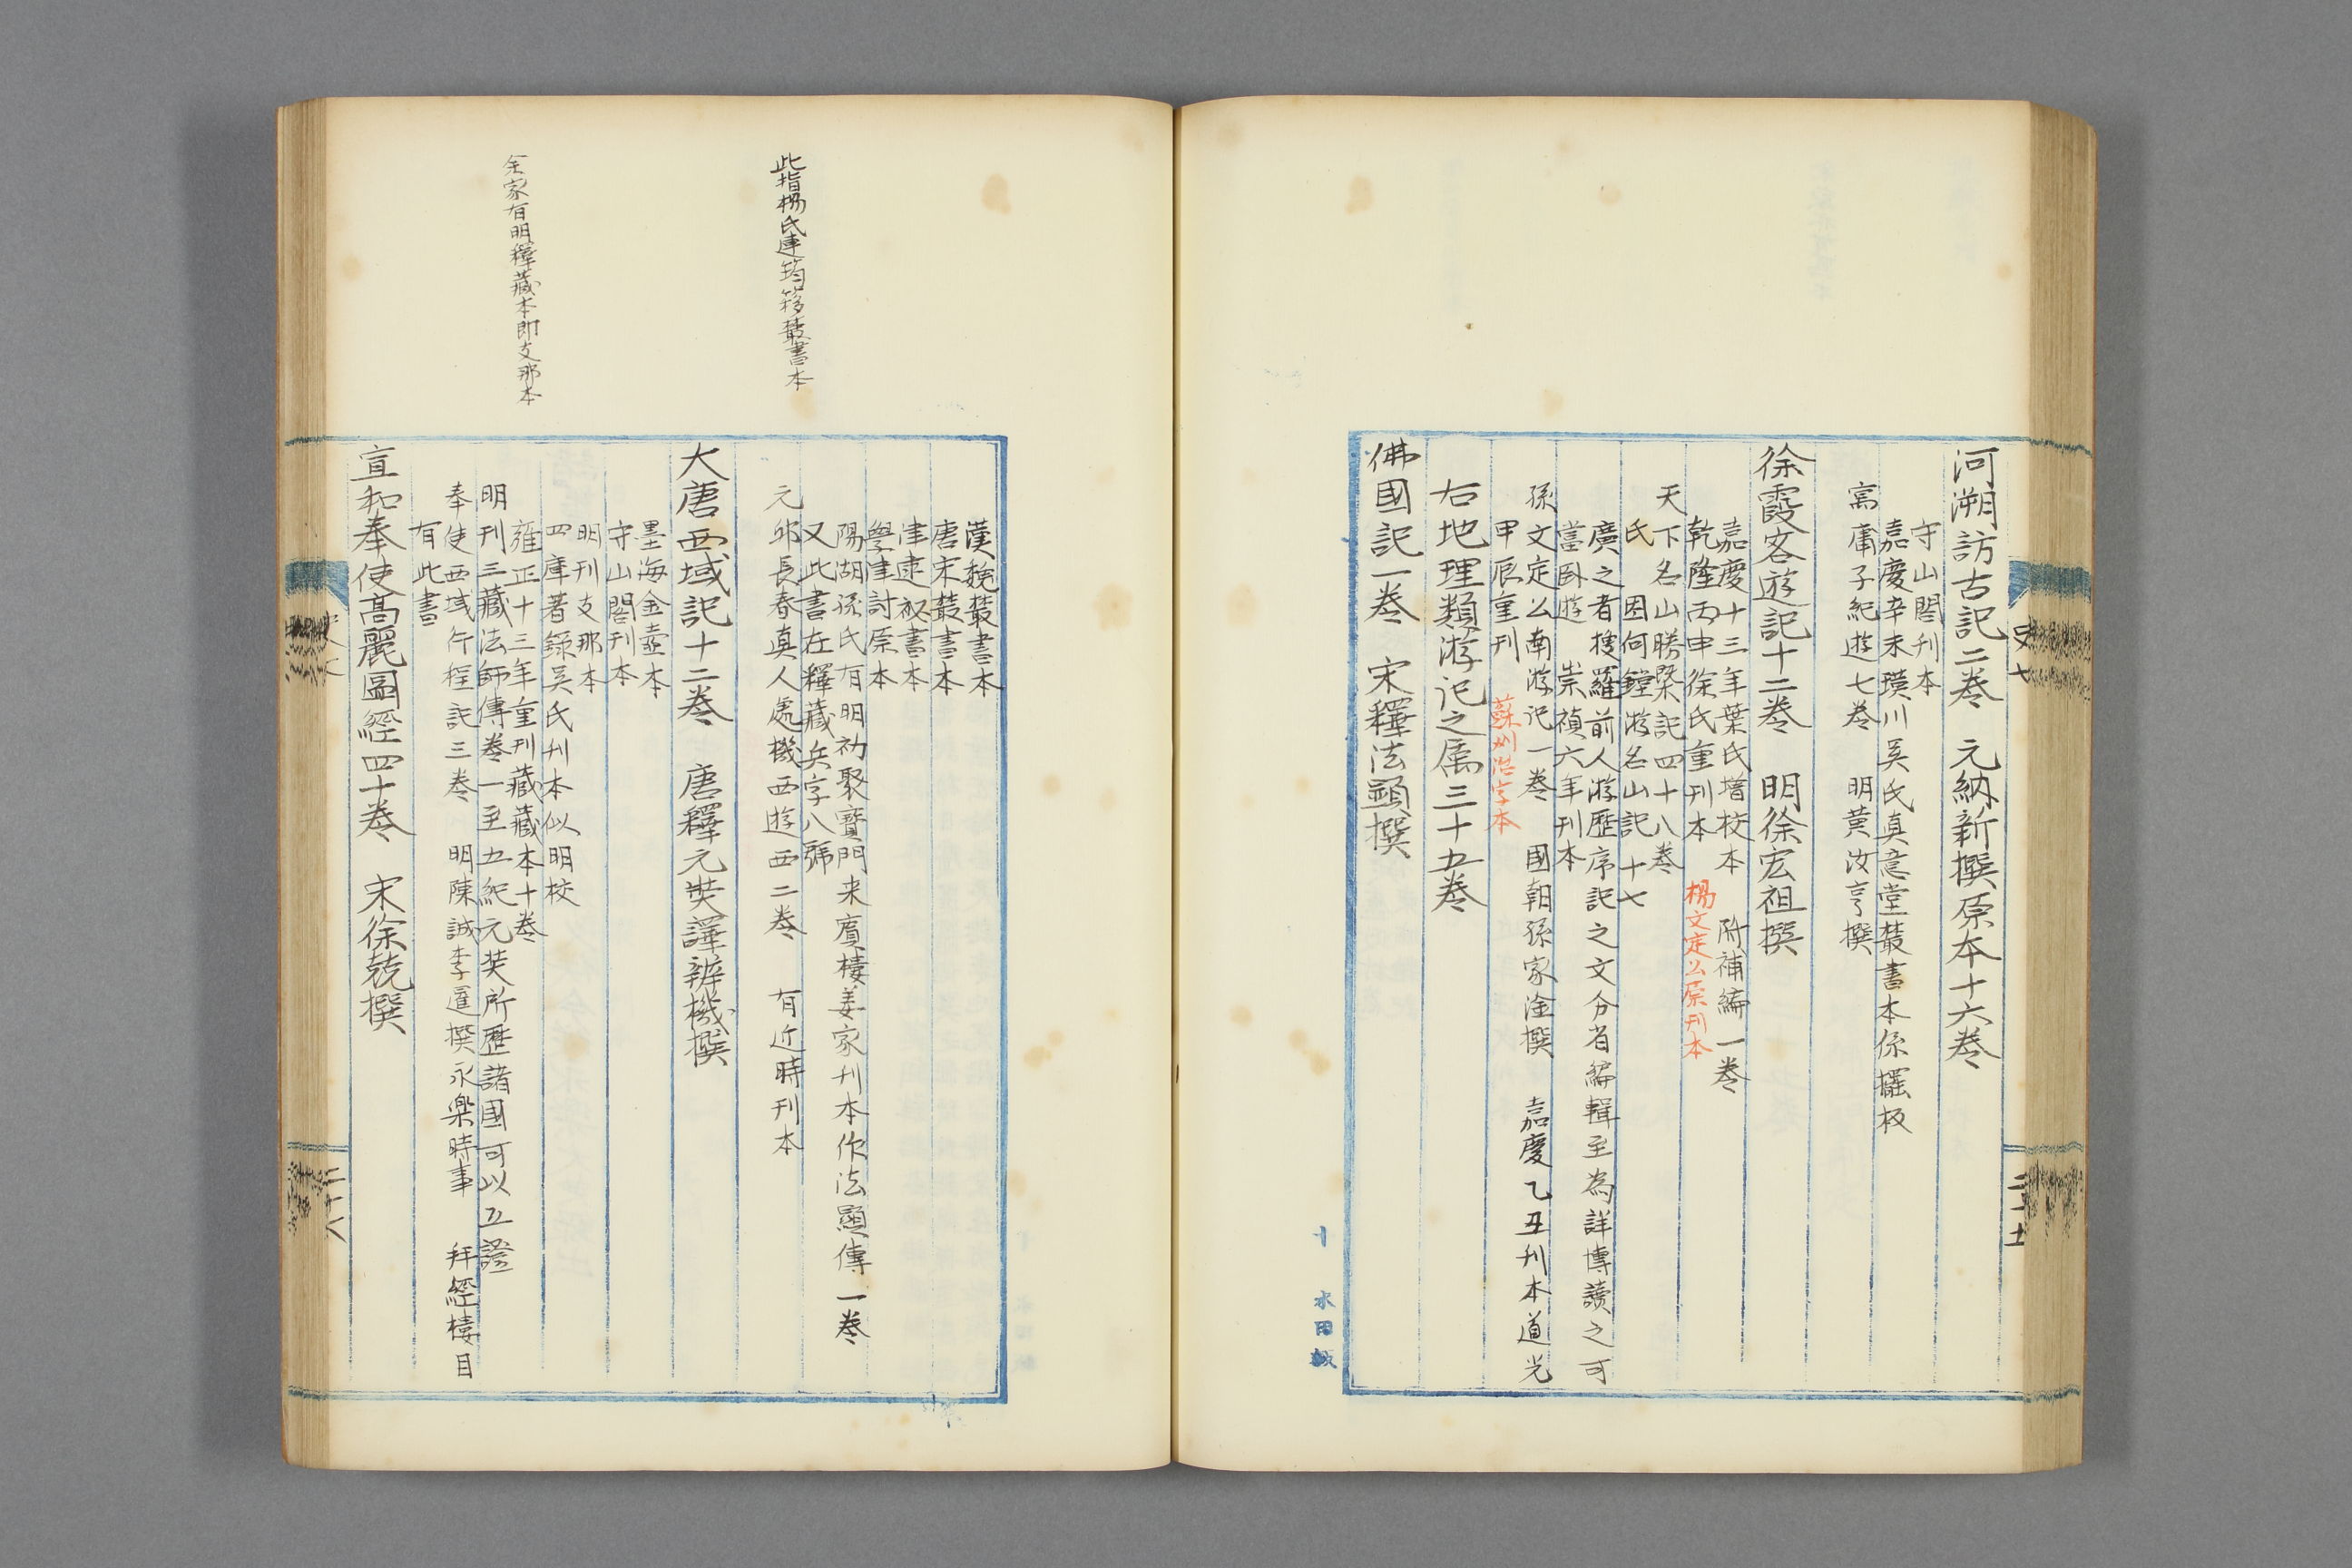 河溯訪古記二卷　元納新撰原本十六卷
守山閣刊本
嘉慶辛未璜川吳氏真意堂叢書本係擺板
寓庸子紀遊七卷　明黃汝亨撰
徐霞客遊記十二卷　明徐宏祖撰
嘉慶十三年葉氏增校本　附補編一卷
乾隆丙申徐氏重刊本　楊文定公原刊本
天下名山勝槩記四十八卷
氏　因何鏜游名山記　十七
廣之者搜羅前人游歷序記之文分省編輯至為詳博讀之可
當卧遊　崇禎六年刊本
孫文定公南游記一卷　國朝孫家淦撰　嘉慶乙丑刊本道光
甲辰重刊　蘇州活字本
右地理類游記之属三十五卷
佛國記一卷　宋釋法顯撰
史七
二十七
水田板
此指楊氏連筠簃叢書本
余家有明釋藏本即支那本
漢魏叢書本
唐宋叢書本
津逮祕書本
學津討原本
陽湖孫氏有明初聚寶門来賓樓姜家刊本作法顯傳一卷
又此書在釋藏兵字八號
元邱長春真人處機西遊西二卷　有近時刊本
大唐西域記十二卷　唐釋元奘譯辨機撰
墨海金壺本
守山閣刊本
明刊支那本
四庫著錄吴氏刊本似明校
雍正十三年重刊藏藏本十卷
明刊三藏法師傳卷一至五紀元奘所歷諸國可以互證
奉使西域行程記三卷　明陳誠李暹撰永樂時事　拜經樓目
有此書
宣和奉使高麗圖經四十卷　宋徐兢撰